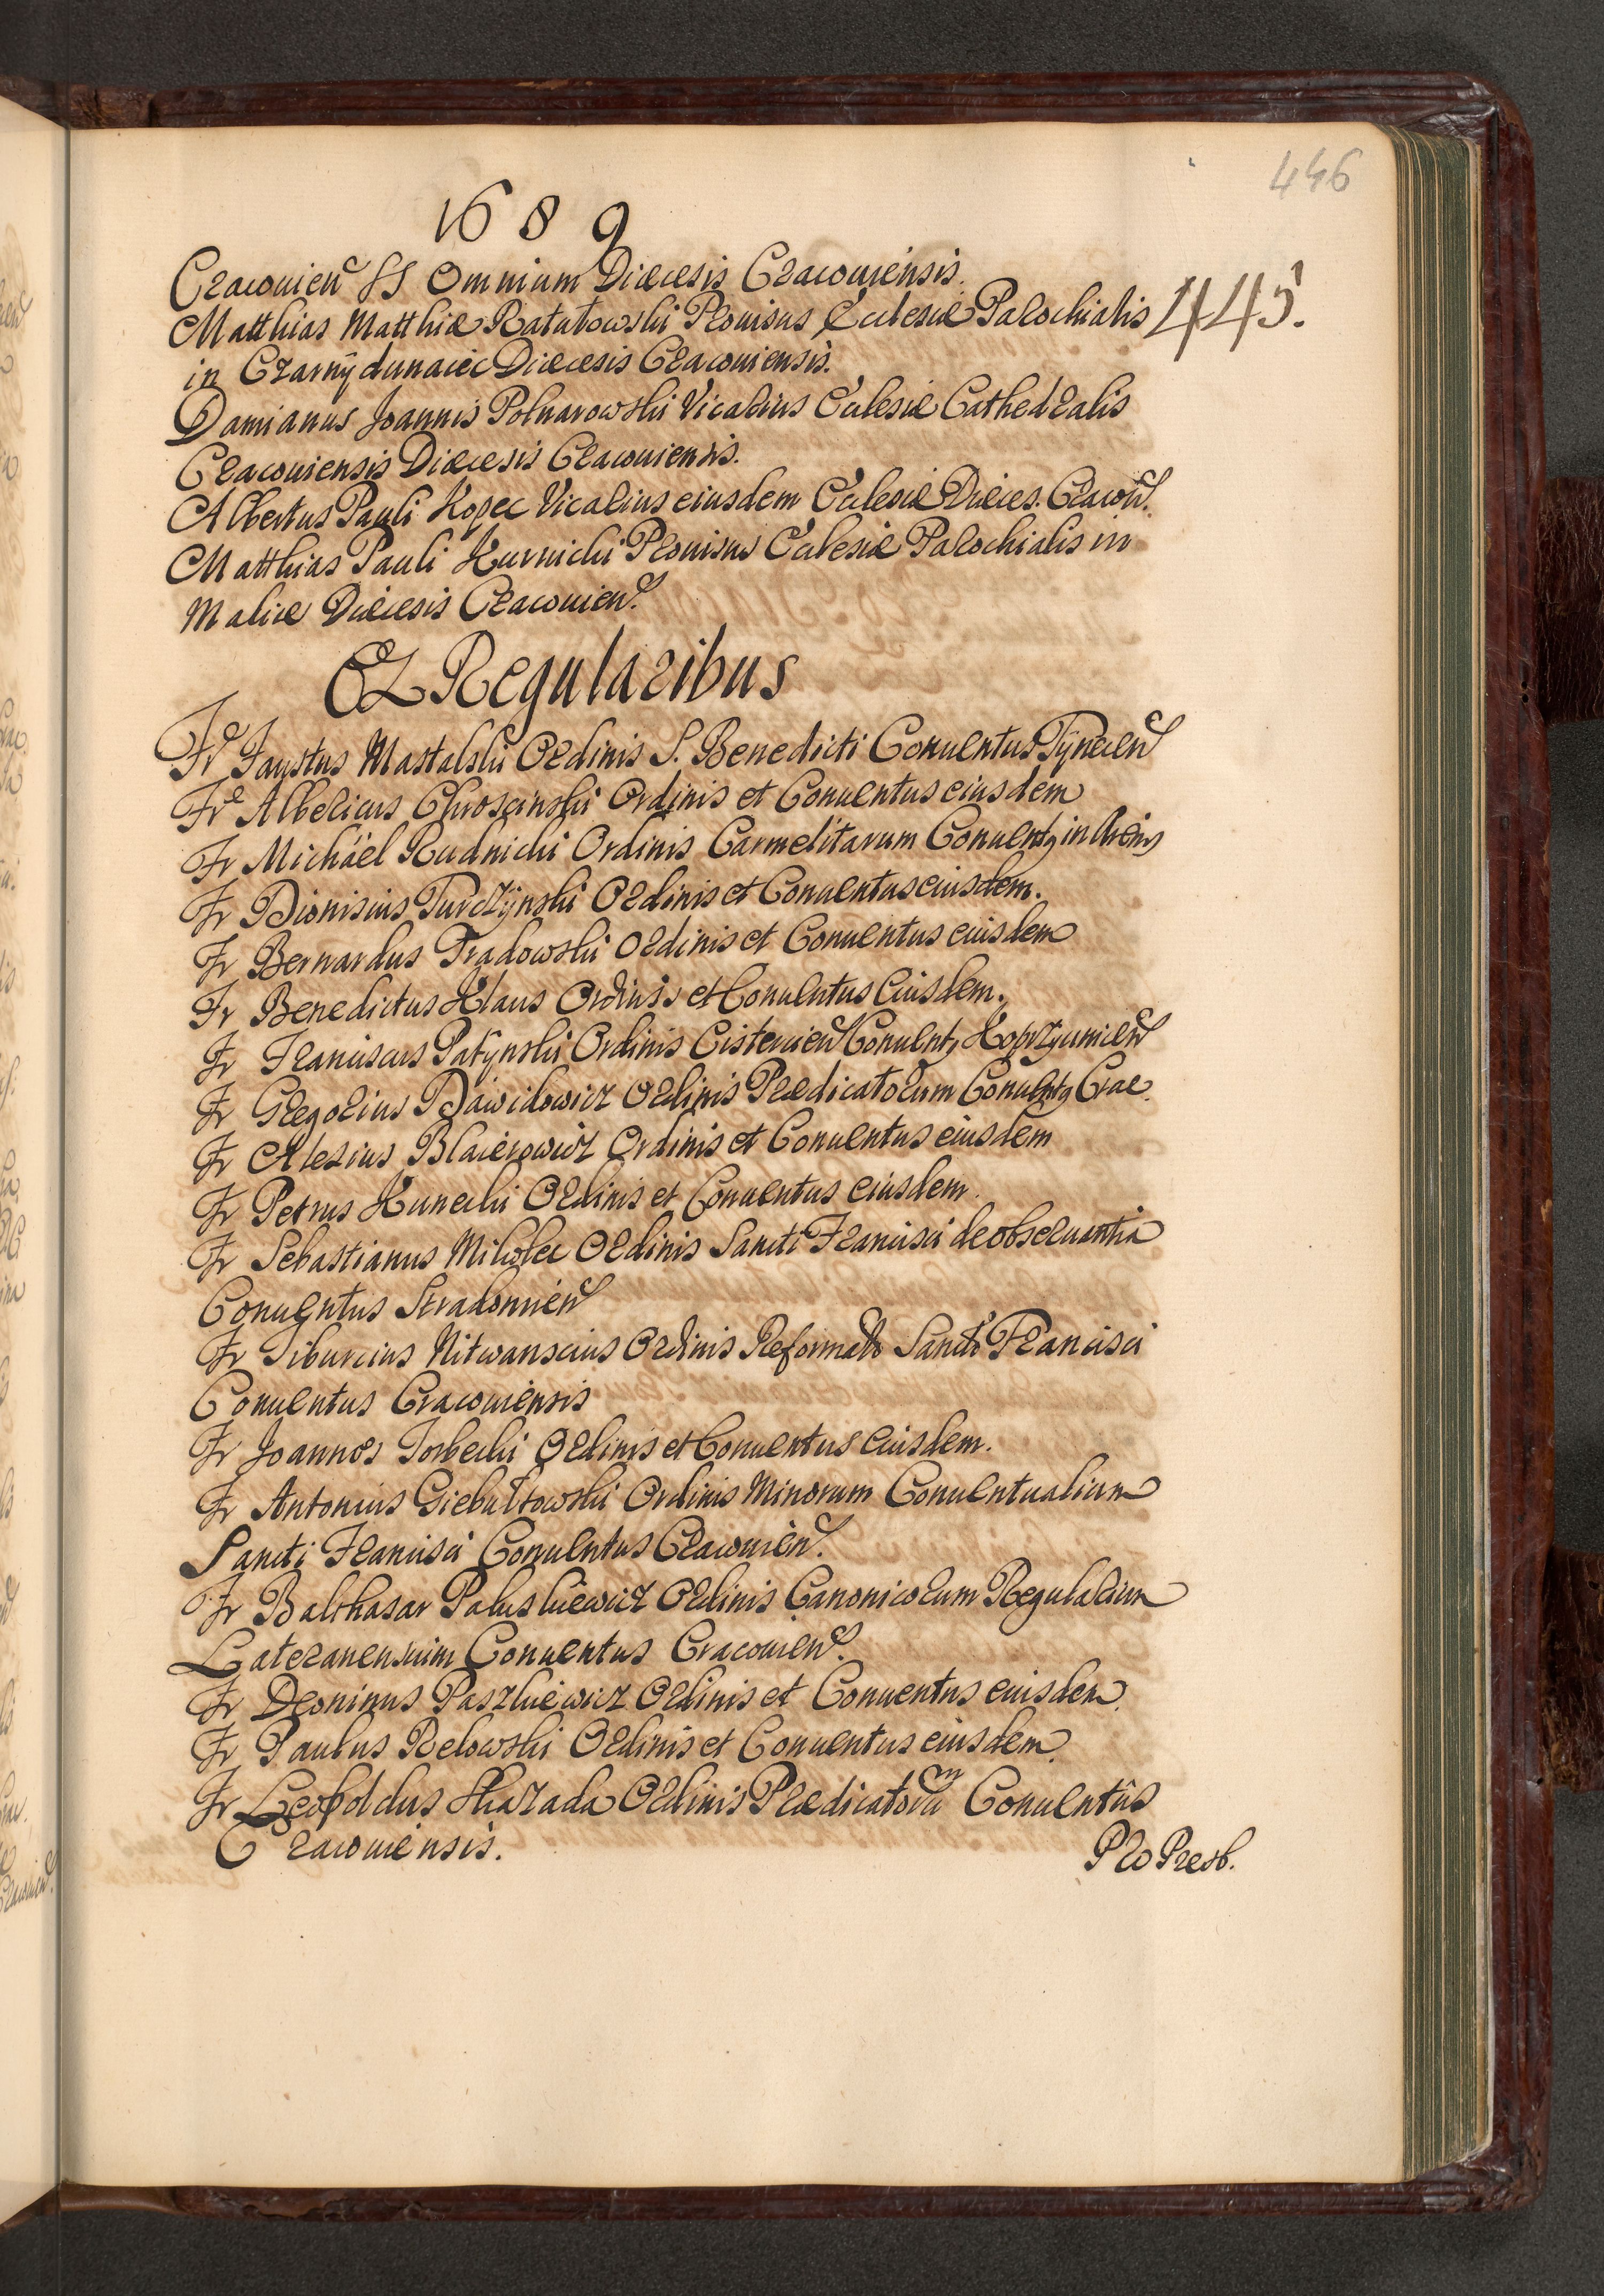 446
1689
Cracouien SS Omnium Diæcesis Cracouiensis.
Matthias Matthiæ Ratułowski Prouisus Ecclesiæ Parochialis
445.
in Czarnÿdunaiec Diæcesis Cracouiensis.
Damianus Joannis Polnarowski Vicarius Eclesiæ Cathedralis
Cracouiensis Diæcesis Cracouiensis.
Albertus Pauli Kopec Vicarius eiusdem Eclesiæ Diæces. Cracou.
Matthias Pauli Kurnicki Prouisus Eclesiæ Parochialis in
Malice Diæcesis Cracouien.
Ex Regularibus
Fr Faustus Mastalski Ordinis S. Benedicti Conuentus Tÿnecien
Fr Albericus Chroscinski Ordinis et Conuentus eiusdem
Fr Michäel Rudnicki Ordinis Carmelitarum in
Fr Dionisius Turczÿnski Ordinis et Conuentus eiusdem.
Fr Bernardus Ordinis et Conuentus eiusdem
Fr Benedictus Klaus Ordinis et Conuentus eiusdem.
Fr Franciscus Patÿnski Ordinis Cistercien Conuent9 Koprzÿwnicen
Fr Gregorius Dawidowicz Ordinis Prædicatorum Conuent9 Crac.
Fr Alexius Ordinis et Conuentus eiusdem
Fr Petrus Kunecki Ordinis et Conuentus eiusdem.
Fr Sebastianus Mikołec Ordinis Sancti Francisci de obseruantia
Conuentus Stradomien
Fr Tiburcius Ordinis Sancti Francisci
Conuentus Cracouiensis
Fr Joannes Ordinis et Conuentus eiusdem.
Fr Antonius Giebułtowski Ordinis Minorum Conuentualium
Sancti Francisci Conuentus Cracouien.
Fr Balthasar Paluskiewicz Ordinis Canonicorum Regularium
Lateranensium Conuentus Cracouien.
Fr Paszkiewicz Ordinis et Conuentus eiusdem.
Fr Paulus Relowski Ordinis et Conuentus eiusdem.
Fr Leopoldus Skarada Ordinis Prædicatorum Conuentûs
Cracouiensis.
Pro Presb.